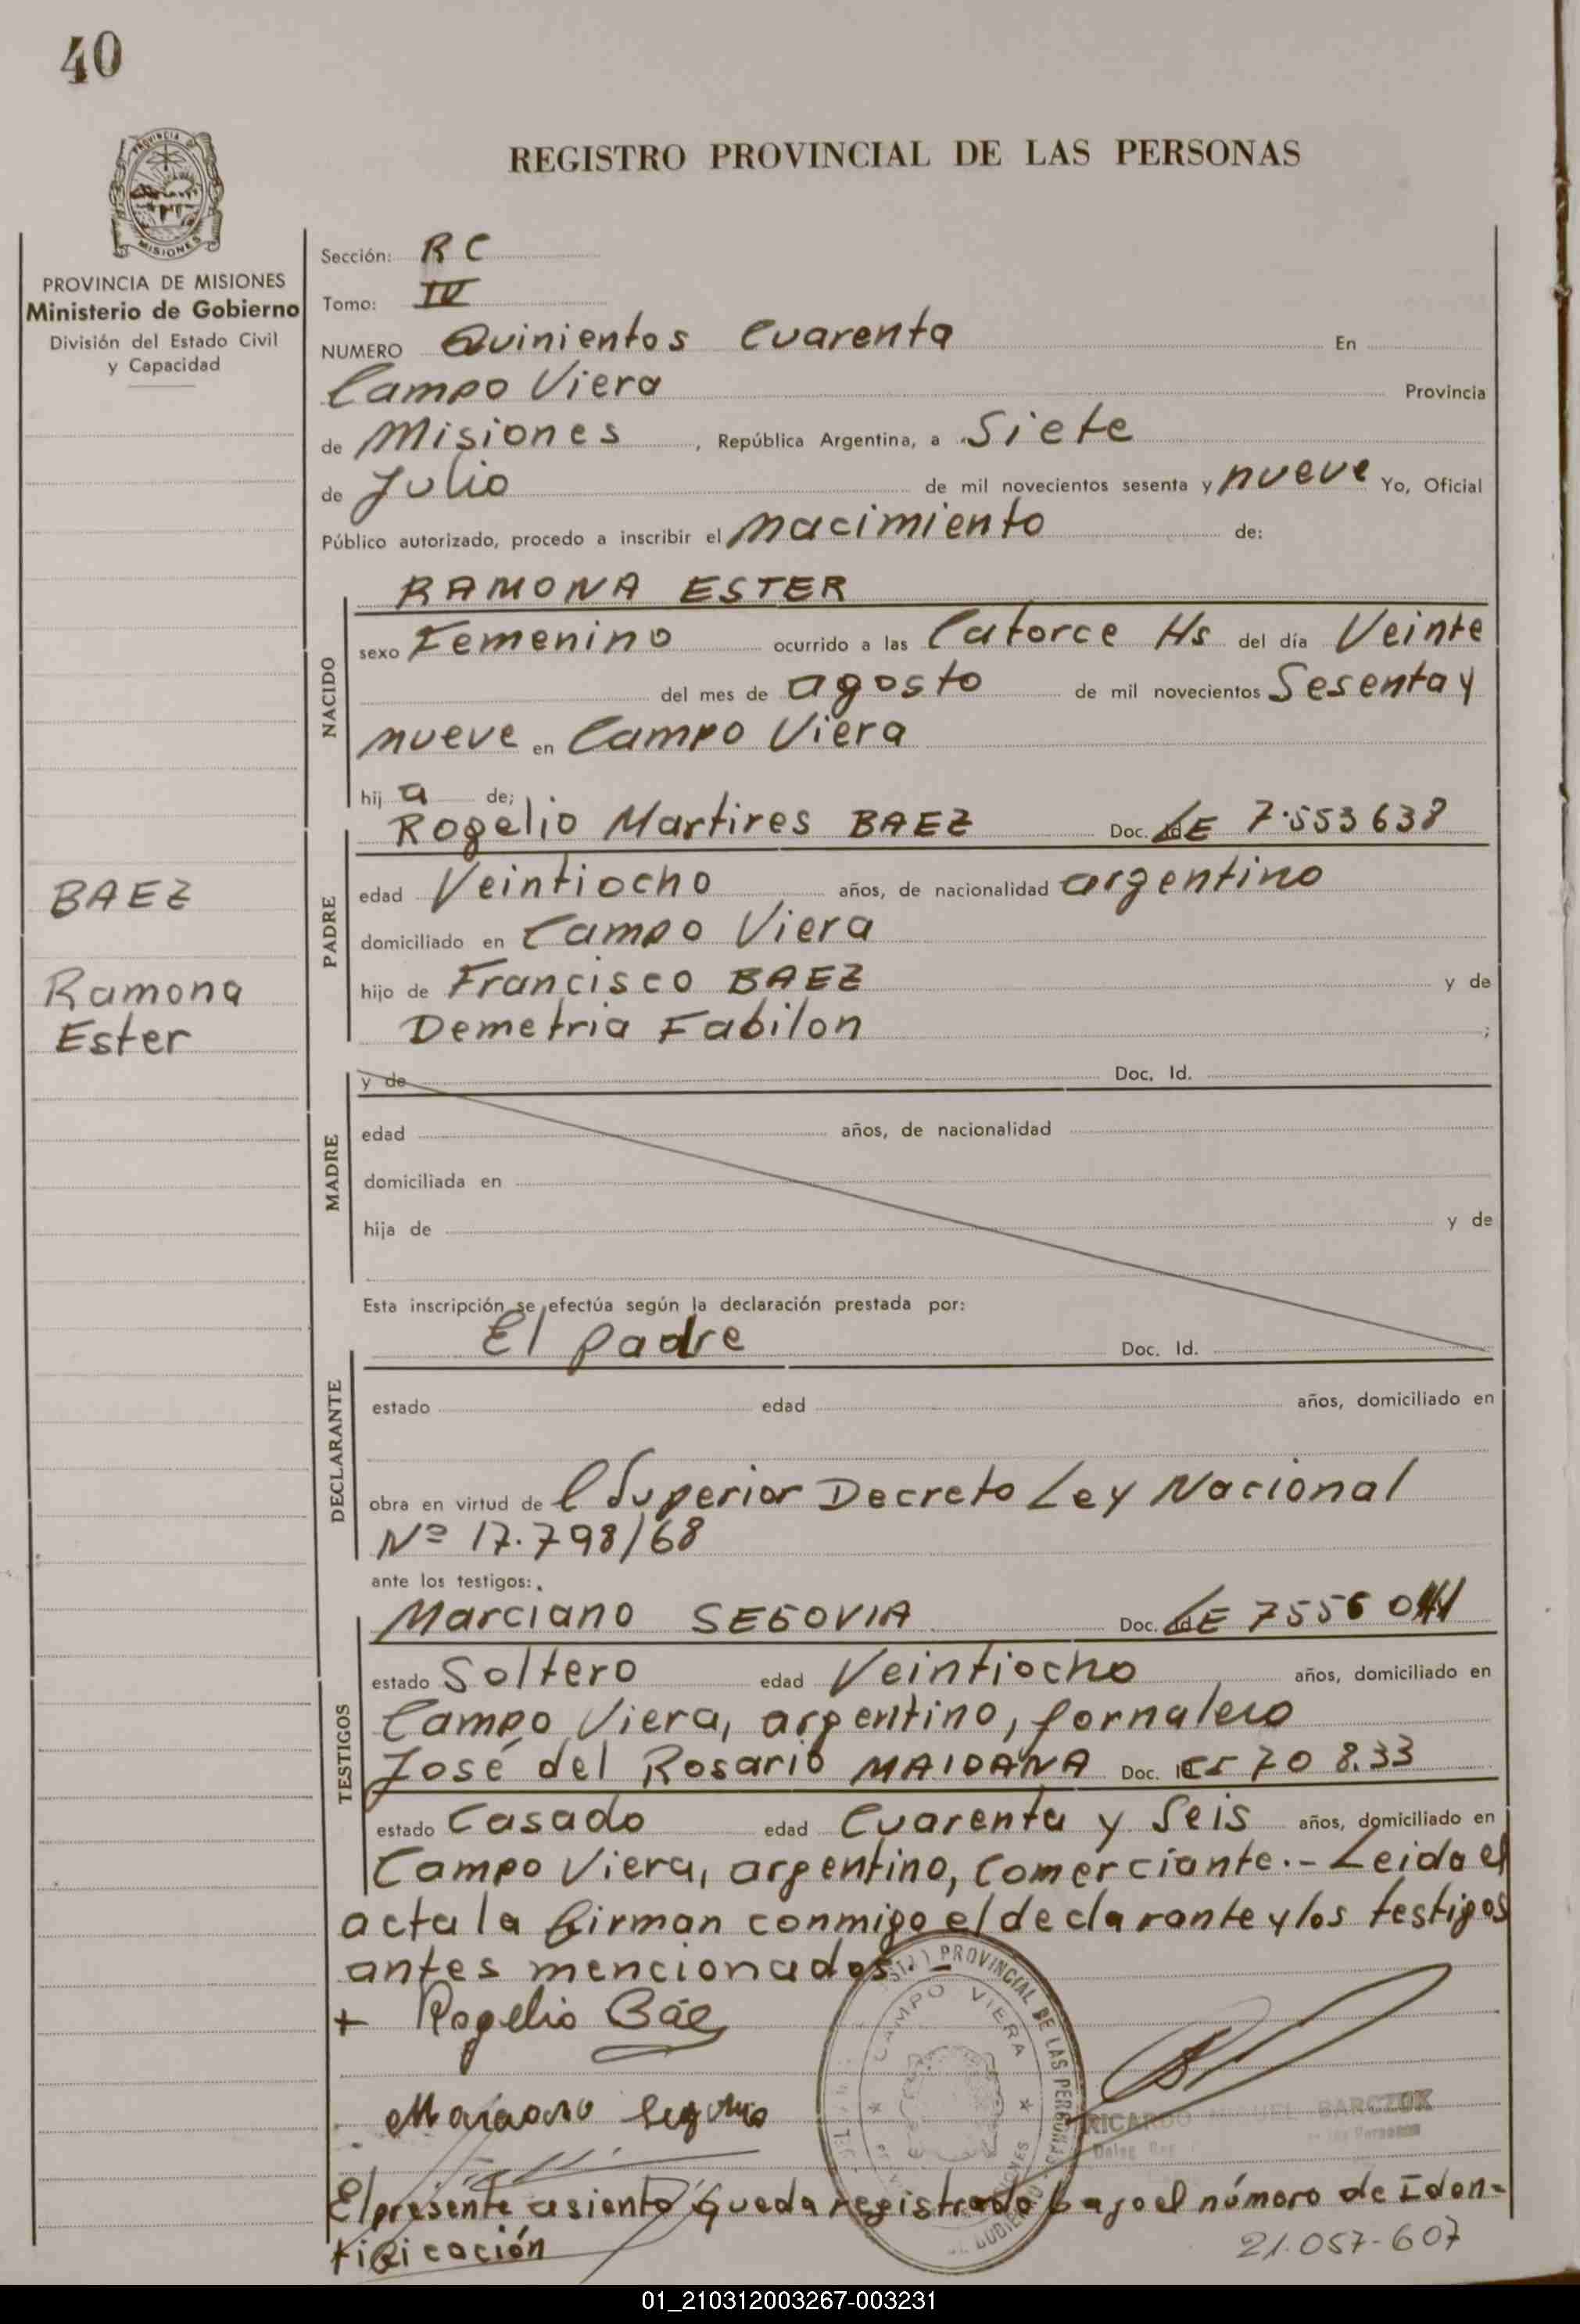 40
REGISTRO PROVINCIAL DE LAS PERSONAS
PROVINCIA DE
MISIONES
PROVINCIA DE MISIONES
Ministerio de Gobierno
División del Estado Civil
y Capacidad
Sección: RC
Tomo: IV
NUMERO Quinientos Cuarenta En
Campo Viera Provincia
de Misiones, República Argentina, a Siete
de Julio de mil novecientos sesenta y nueve Yo, Oficial
Público autorizado, procedo a inscribir el nacimiento de:
NACIDO
RAMONA ESTER
sexo Femenino ocurrido a las Catorce Hs del día Veinte
del mes de agosto de mil novecientos Sesenta y
nueve en Campo Viera
hij a de;
PADRE
Rogelio Martires BAEZ Doc. LE 7.553638
edad Veintiocho años, de nacionalidad argentino
domiciliado en Campo Viera
hijo de Francisco BAEZ y de
Demetria Fabilon ;
BAEZ
Ramona
Ester
MADRE
y de Doc. Id.
edad años, de nacionalidad
domiciliada en
hija de y de
Esta inscripción se efectúa según la declaración prestada por:
DECLARANTE
El padre Doc. Id.
estado edad años, domiciliado en
obra en virtud de l Superior Decreto Ley Nacional
Nº 17.798/68
ante los testigos:
TESTIGOS
Marciano SEGOVIA Doc. LE 7556
estado Soltero edad Veintiocho años, domiciliado en
Campo Viera, argentino, jornalero
José del Rosario MAIDANA Doc. 70 8.33
estado Casado edad Cuarenta y Seis años, domiciliado en
Campo Viera, argentino, Comerciante.- Leida el
acta la firman conmigo el declarante y los testigos
antes mencionados
+ Rogelio Báez
Marciano Segovia
PROVINCIAL DE LAS PERSONAS
CAMPO VIERA
RICARDO MIGUEL BARCZUK
El presente asiento queda registrado bajo el número de Iden-
tificación 21.057-607
01_210312003267-003231